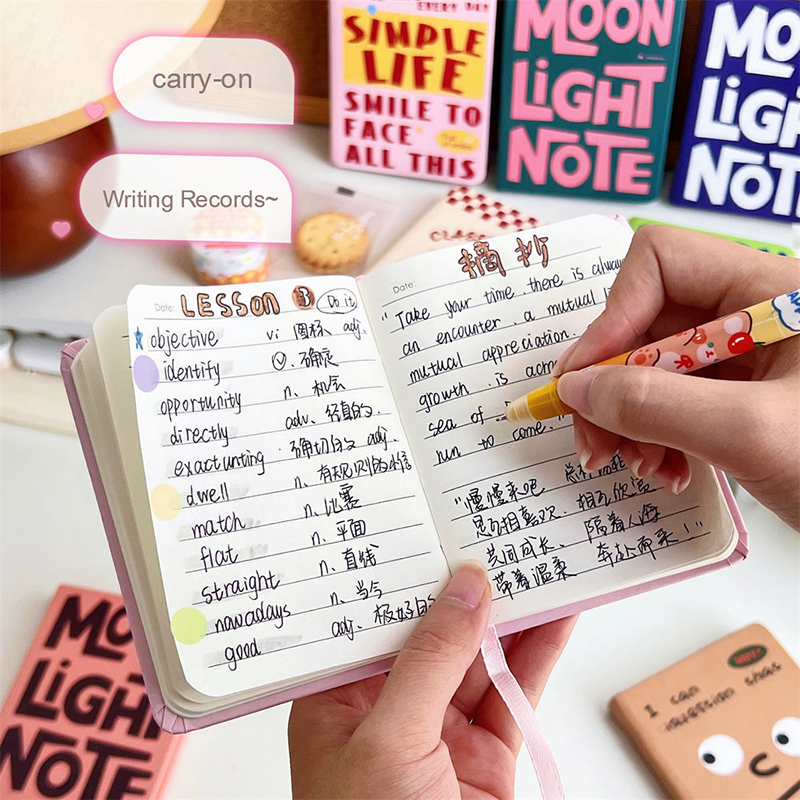 carry-on
Writing Records~
EVERY DAY
SIMPLE
LIFE
SMILE TO
FACE
ALL THIS
MOON
LIGHT
NOTE
MO
LIGH
NOT
Date: LESSON 3 Do it
objective vi 圆标 adj.
identify 确定
opportunity n. 机会
directly adv. 径直的
exactunting 确切的 adj.
dwell n. 有规则的
match n. 比赛
flat n. 平面
straight n. 直线
nawadays n. 当今
good adj. 极好的
摘抄
Date:
"Take your time. there is always
an encounter. a mutual
mutual appreciation.
growth. is acro
sea of
run to come.
"慢慢来吧 总
是互相喜欢. 相互欣赏
共同成长、隔着人海
带着温柔 奔赴而来!"
MO
LIGHT
NOTE
I can